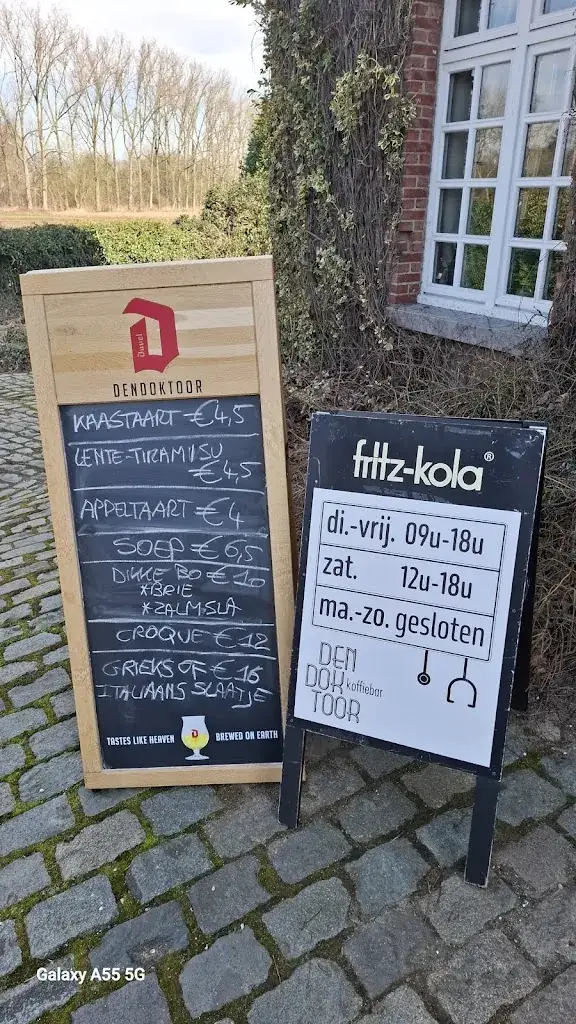 Duvel
DENDOKTOOR
KAASTAART €4,5
LENTE-TIRAMISU
€4,5
APPELTAART €4
SOEP €6,5
DIKKE BO €10
*BRIE
*ZALMSLA
CROQUE €12
GRIEKS OF €16
ITALIAANS SLAATJE
TASTES LIKE HEAVEN BREWED ON EARTH
fritz-kola®
di.-vrij. 09u-18u
zat. 12u-18u
ma.-zo. gesloten
DEN
DOK koffiebar
TOOR
Galaxy A55 5G